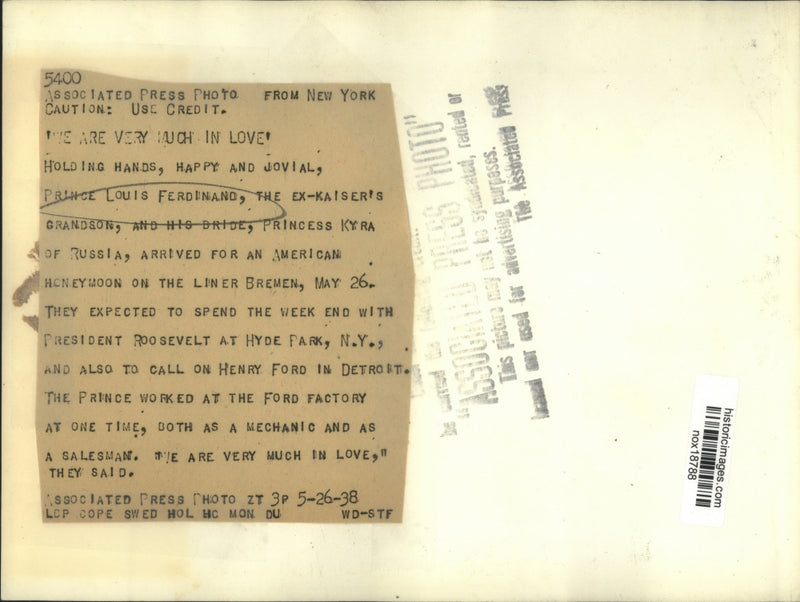 5400
ASSOCIATED PRESS PHOTO FROM NEW YORK
CAUTION: USE CREDIT.
"WE ARE VERY MUCH IN LOVE"
HOLDING HANDS, HAPPY AND JOVIAL,
PRINCE LOUIS FERDINAND, THE EX-KAISER'S
GRANDSON, AND HIS BRIDE, PRINCESS KYRA
OF RUSSIA, ARRIVED FOR AN AMERICAN
HONEYMOON ON THE LINER BREMEN, MAY 26.
THEY EXPECTED TO SPEND THE WEEK END WITH
PRESIDENT ROOSEVELT AT HYDE PARK, N.Y.,
AND ALSO TO CALL ON HENRY FORD IN DETROIT.
THE PRINCE WORKED AT THE FORD FACTORY
AT ONE TIME, BOTH AS A MECHANIC AND AS
A SALESMAN. "WE ARE VERY MUCH IN LOVE,"
THEY SAID.
ASSOCIATED PRESS PHOTO ZT 3P 5-26-38
LCP COPE SWED HOL HC MON DU WD-STF
be carried the
"ASSOCIATED PRESS PHOTO"
This picture may not be syndicated, rented or
loaned nor used for advertising purposes.
The Associated Press
historicimages.com
nox18788